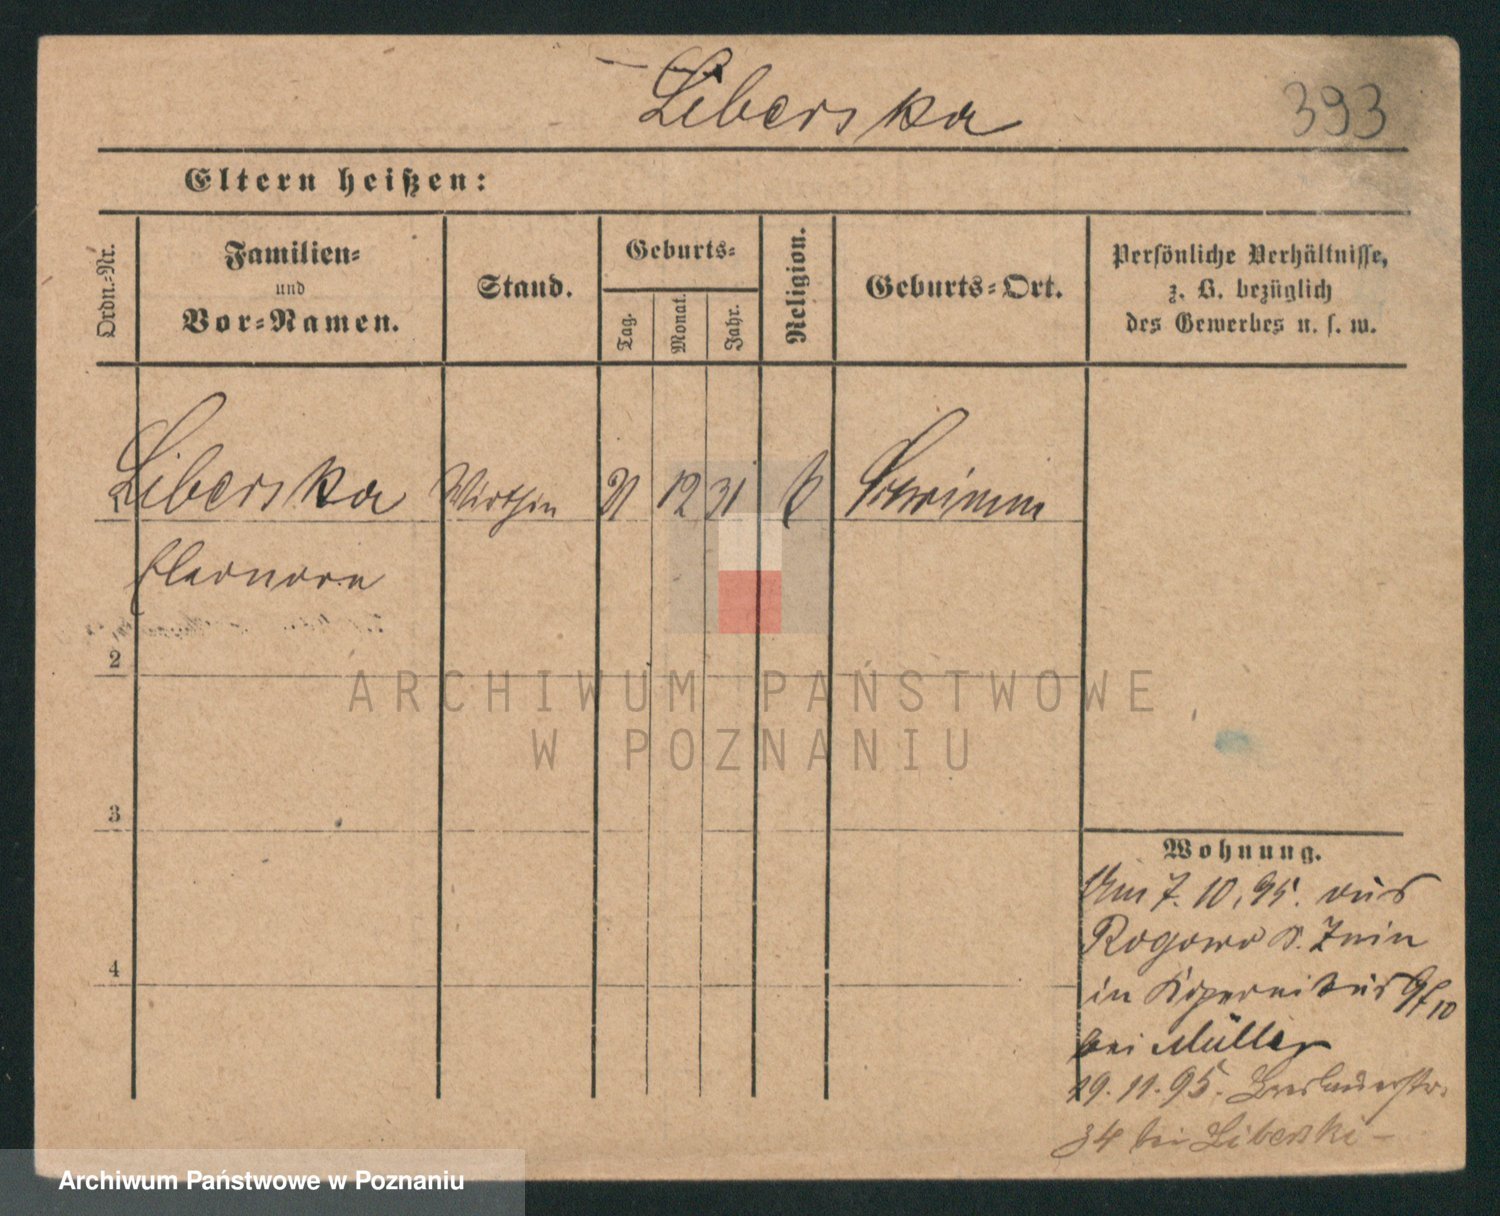 Liberska
393
Eltern heißen:
Ordn.-Nr.
Familien-
und
Vor-Namen.
Stand.
Geburts-
Tag.
Monat.
Jahr.
Religion.
Geburts-Ort.
Persönliche Verhältnisse,
z. B. bezüglich
des Gewerbes u. s. w.
Liberska Wirthin 21 12 31 k Schrimm
Eleonore
2
3
4
Wohnung.
Am 7. 10. 95. aus
Rogowo Kr. Znin
in Kopernikusstr 10
bei Müller
29. 11. 95. Breslauerstr.
34 bei Liberski
ARCHIWUM PAŃSTWOWE
W POZNANIU
Archiwum Państwowe w Poznaniu